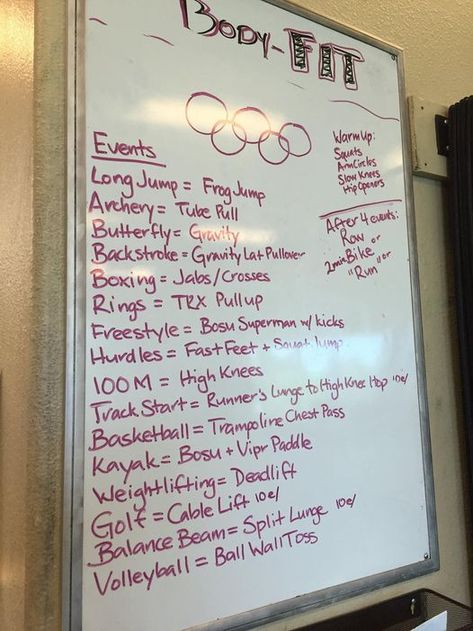 BODY-FIT
Events
Long Jump = Frog Jump
Archery = Tube Pull
Butterfly = Gravity
Backstroke = Gravity Lat Pullover
Boxing = Jabs/Crosses
Rings = TRX Pull up
Freestyle = Bosu Superman w/ kicks
Hurdles = Fast Feet + Squat Jump
100 M = High Knees
Track Start = Runner's Lunge to High Knee Hop 10e/
Basketball = Trampoline Chest Pass
Kayak = Bosu + Vipr Paddle
Weightlifting = Deadlift
Golf = Cable Lift 10e/
Balance Beam = Split Lunge 10e/
Volleyball = Ball Wall Toss
Warm Up:
Squats
Arm Circles
Slow Knees
Hip Openers
After 4 events:
Row or
2min Bike or
"Run"